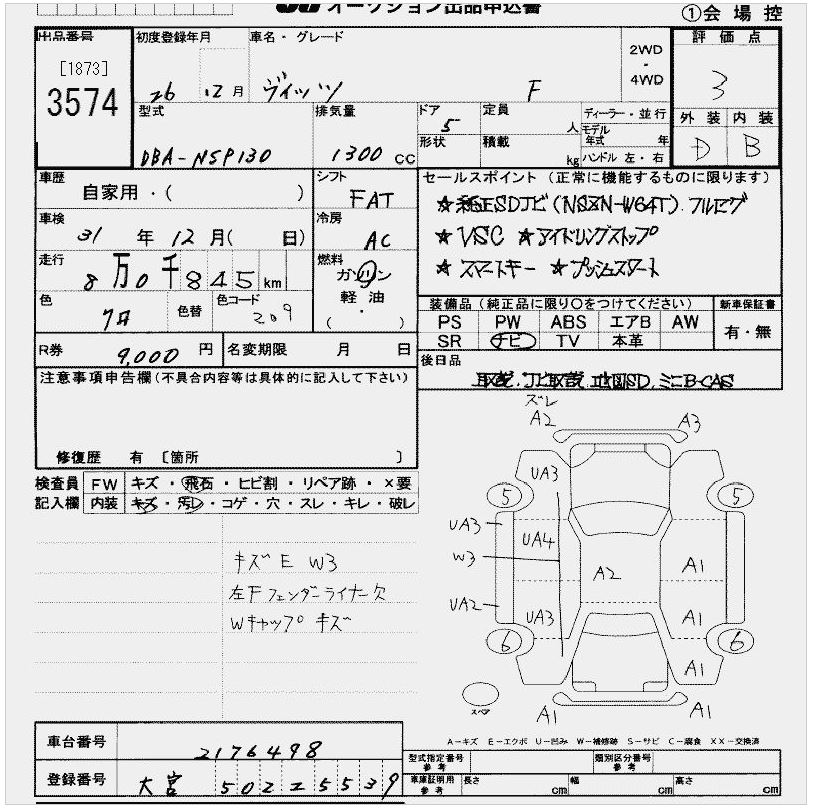 オークション出品申込書
①会場控
出品番号
[1873]
3574
初度登録年月
26 12月
車名・グレード
ヴィッツ F
2WD
・
4WD
評価点
3
外装 内装
D B
型式
DBA-NSP130
排気量
1300 CC
ドア
5
形状
定員
人
積載
kg
ディーラー・並行
モデル年式 年
ハンドル 左・右
車歴
自家用・( )
シフト
FAT
車検
31 年 12 月( 日)
冷房
AC
走行
8 万 0 千 8 4 5 km
燃料
ガソリン
軽油
・
( )
色
クロ
色替
色コード
209
セールスポイント (正常に機能するものに限ります)
☆純正SDナビ(NSZN-W64T).フルセグ
☆VSC ☆アイドリングストップ
☆スマートキー ☆プッシュスタート
装備品 (純正品に限り○をつけてください)
PS PW ABS エアB AW
SR ナビ TV 本革
新車保証書
有・無
R券 9,000 円
名変期限 月 日
後日品
取説.ナビ取説.地図SD.ミニB-CAS
注意事項申告欄 (不具合内容等は具体的に記入して下さい)
修復歴 有 [箇所 ]
検査員記入欄
FW キズ・飛石・ヒビ割・リペア跡・×要
内装 キズ・汚レ・コゲ・穴・スレ・キレ・破レ
キズE W3
左Fフェンダーライナー欠
Wキャップ キズ
ズレ
A2 A3
UA3
5 5
UA3
UA4
W3
A2
A1
UA2
UA3
A1
6 6
A1
スペア
A1 A1
A-キズ E-エクボ U-凹み W-補修跡 S-サビ C-腐食 XX-交換済
車台番号
2176498
登録番号
大宮 502 ニ 5539
型式指定番号
参考
類別区分番号
参考
車庫証明用
参考
長さ cm
幅 cm
高さ cm